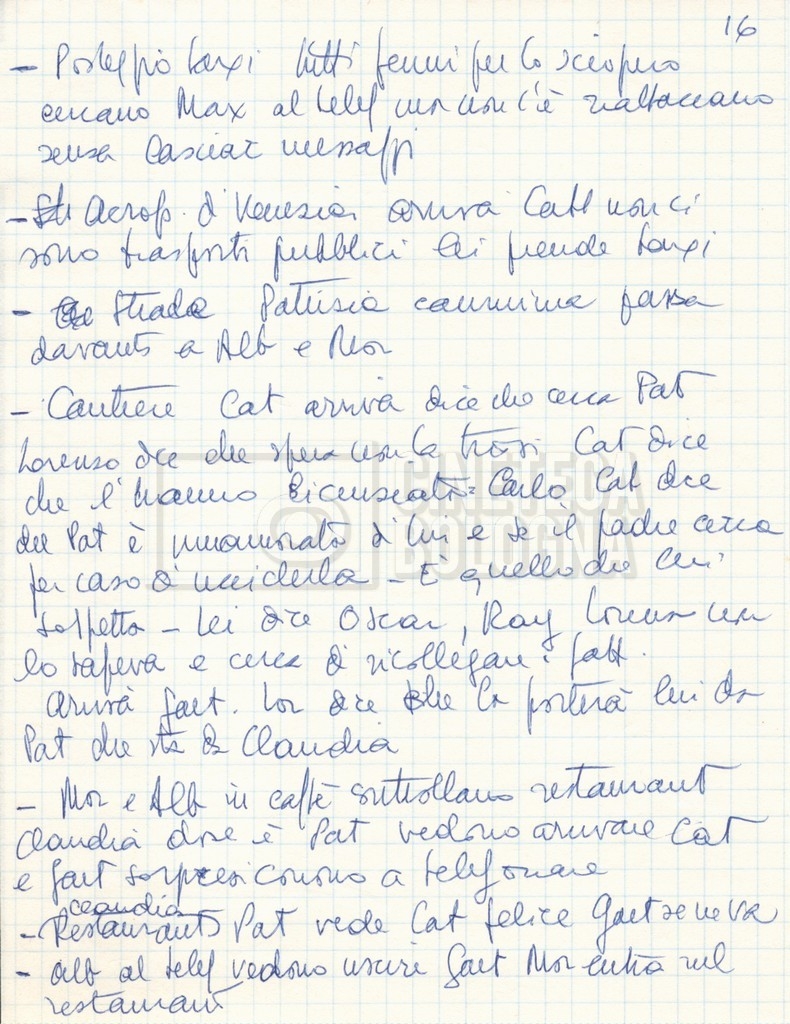 16
- Posteggio taxi tutti fermi per lo sciopero
cercano Max al telef ma non c'è riattaccano
senza lasciar messaggi
- Aerop. di Venezia arriva Cath non ci
sono trasporti pubblici lei prende taxi
- Strada Patrizia cammina passa
davanti a Alb e Mor
- Cantiere Cat arriva dice che cerca Pat
Lorenzo dice che spera non la trovi Cat dice
che l'hanno Carlo Cat dice
che Pat è innamorata di lui e se il padre cerca
per caso di ucciderla - È quello che lui
sospetta - Lei dice Oscar, Ray Lorenzo non
lo sapeva e cerca di ricollegare i fatti.
Arriva Gaet. Lor dice che la porterà lui da
Pat che sta da Claudia
- Mor e Alb in caffè controllano restaurant
Claudia dove è Pat vedono arrivare Cat
e Gaet sorpresi corrono a telefonare
claudia
- Restaurant Pat vede Cat felice Gaet se ne va
- Alb al telef vedono uscire Gaet Mor entra nel
restaurant
CINETECA
BOLOGNA